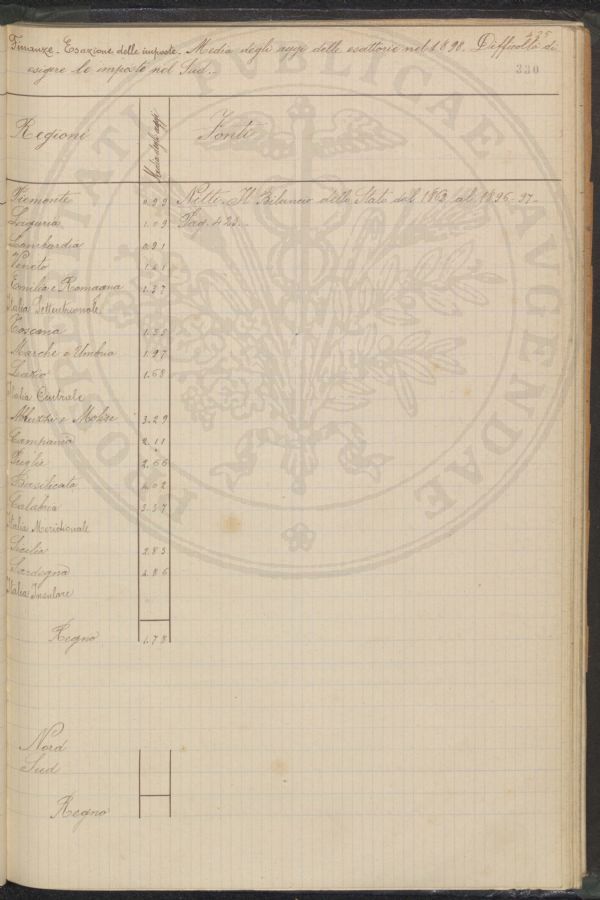 425
Finanze. Esazione delle imposte. Media degli aggi delle esattorie nel 1898. Difficoltà di
esigere le imposte nel Sud.
330
Regioni Media degli aggi Fonti
Piemonte 0.99 Nitti. Il Bilancio dello Stato dal 1862 al 1896-97.
Liguria 1.09 Pag. 423.
Lombardia 0.91
Veneto 1.21
Emilia e Romagna 1.37
Italia Settentrionale
Toscana 1.35
Marche e Umbria 1.97
Lazio 1.68
Italia Centrale
Abruzzi e Molise 3.29
Campania 2.11
Puglie 2.66
Basilicata 4.02
Calabria 3.37
Italia Meridionale
Sicilia 2.83
Sardegna 4.86
Italia Insulare
Regno 1.78
Nord
Sud
Regno
PROSPERITATI PUBLICAE AUGENDAE